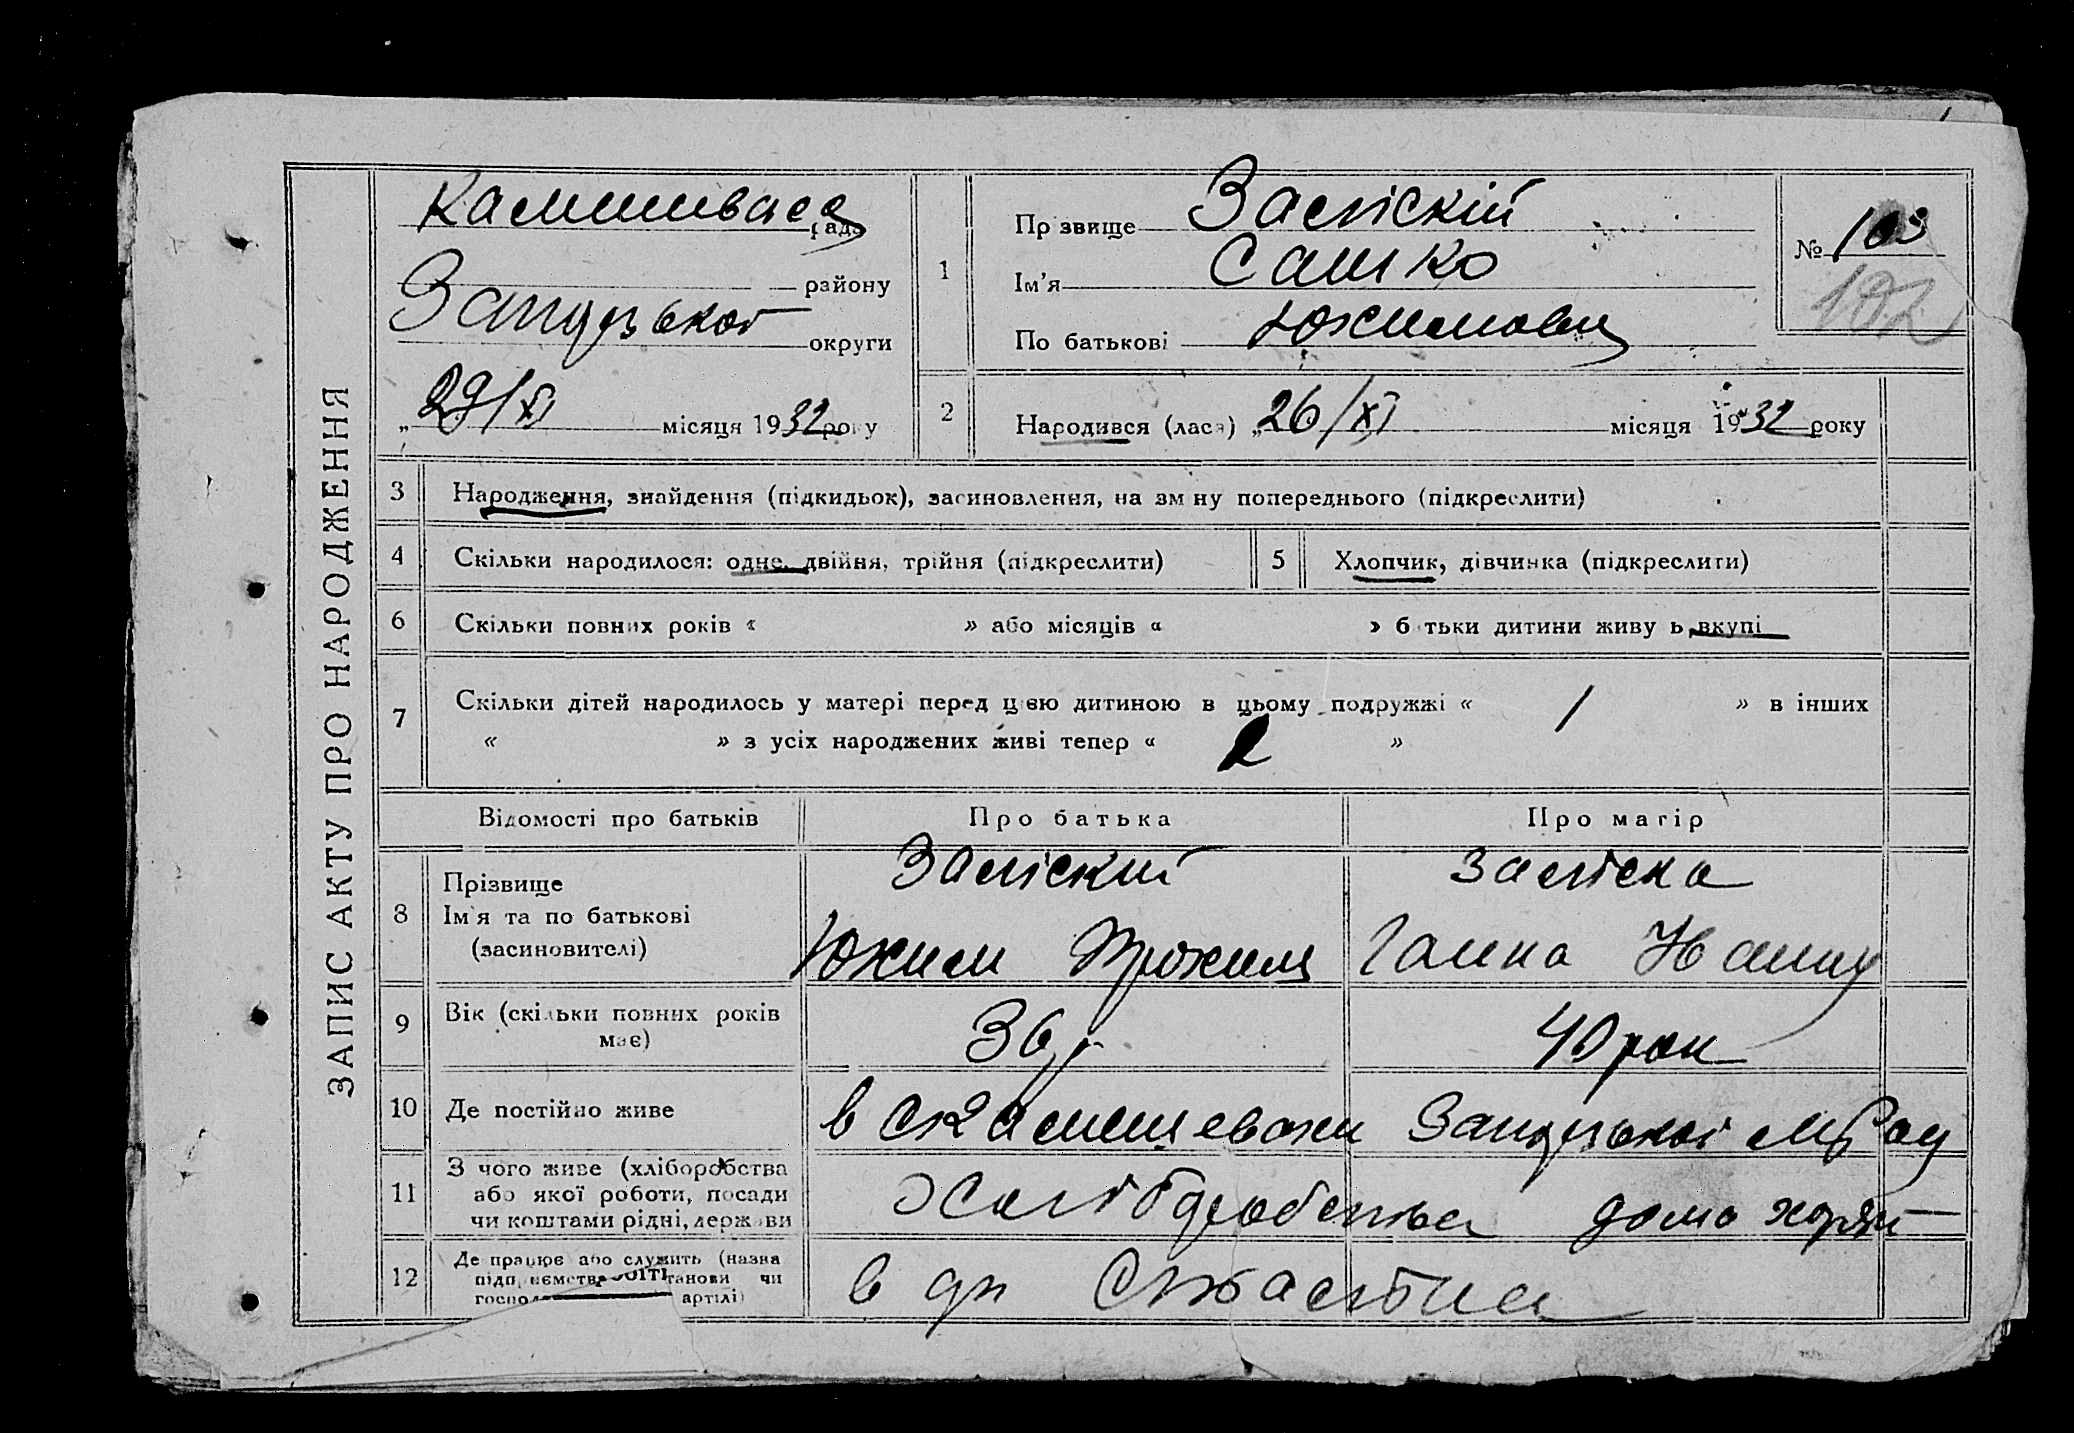 ЗАПИС АКТУ ПРО НАРОДЖЕННЯ
рада
району
округи
„29/XI місяця 1932 року
1
Прізвище Заліскій
Ім'я Сашко
По батькові Юхимович
№ 103
102
2
Народився (лася) „26/XI місяця 1932 року
3
Народження, знайдення (підкидьок), засиновлення, на зміну попереднього (підкреслити)
4
Скільки народилося: одне, двійня, трійня (підкреслити)
5
Хлопчик, дівчинка (підкреслити)
6
Скільки повних років « » або місяців « » батьки дитини живуть вкупі
7
Скільки дітей народилось у матері перед цією дитиною в цьому подружжі « 1 » в інших
« » з усіх народжених живі тепер « 2 »
Відомості про батьків
Про батька
Про матір
8
Прізвище
Ім'я та по батькові
(засиновителі)
Заліский
Юхим
Заліска
Ганна
9
Вік (скільки повних років
має)
36 р
40 рок
10
Де постійно живе
в
11
З чого живе (хліборобства
або якої роботи, посади
чи коштами рідні, держави
Хліборобства
дома
12
Де працює або служить (назва
підприємства установи чи
господ артілі)
в